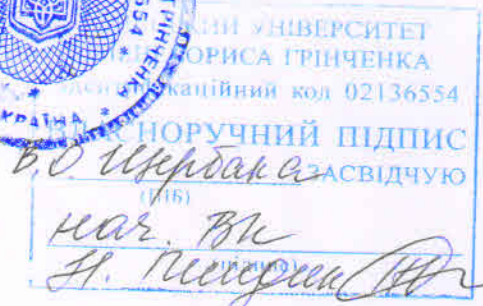 КИЙ УНІВЕРСИТЕТ
БОРИСА ГРІНЧЕНКА
ідентифікаційний код 02136554
ВЛАСНОРУЧНИЙ ПІДПИС
В.О Щербака ЗАСВІДЧУЮ
(ПІБ)
нач. ВК
(підпис)
Н.
ГРІНЧЕНКА
6554 *
УКРАЇНА *